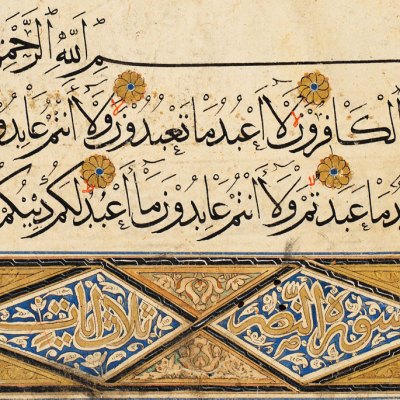 ـم الله الرحمن
الكافرون لا أعبد ما تعبدون ولا أنتم عابدو
ـد ما عبدتم ولا أنتم عابدون ما أعبد لكم دينكم
سورة النصر ثلاث آيات